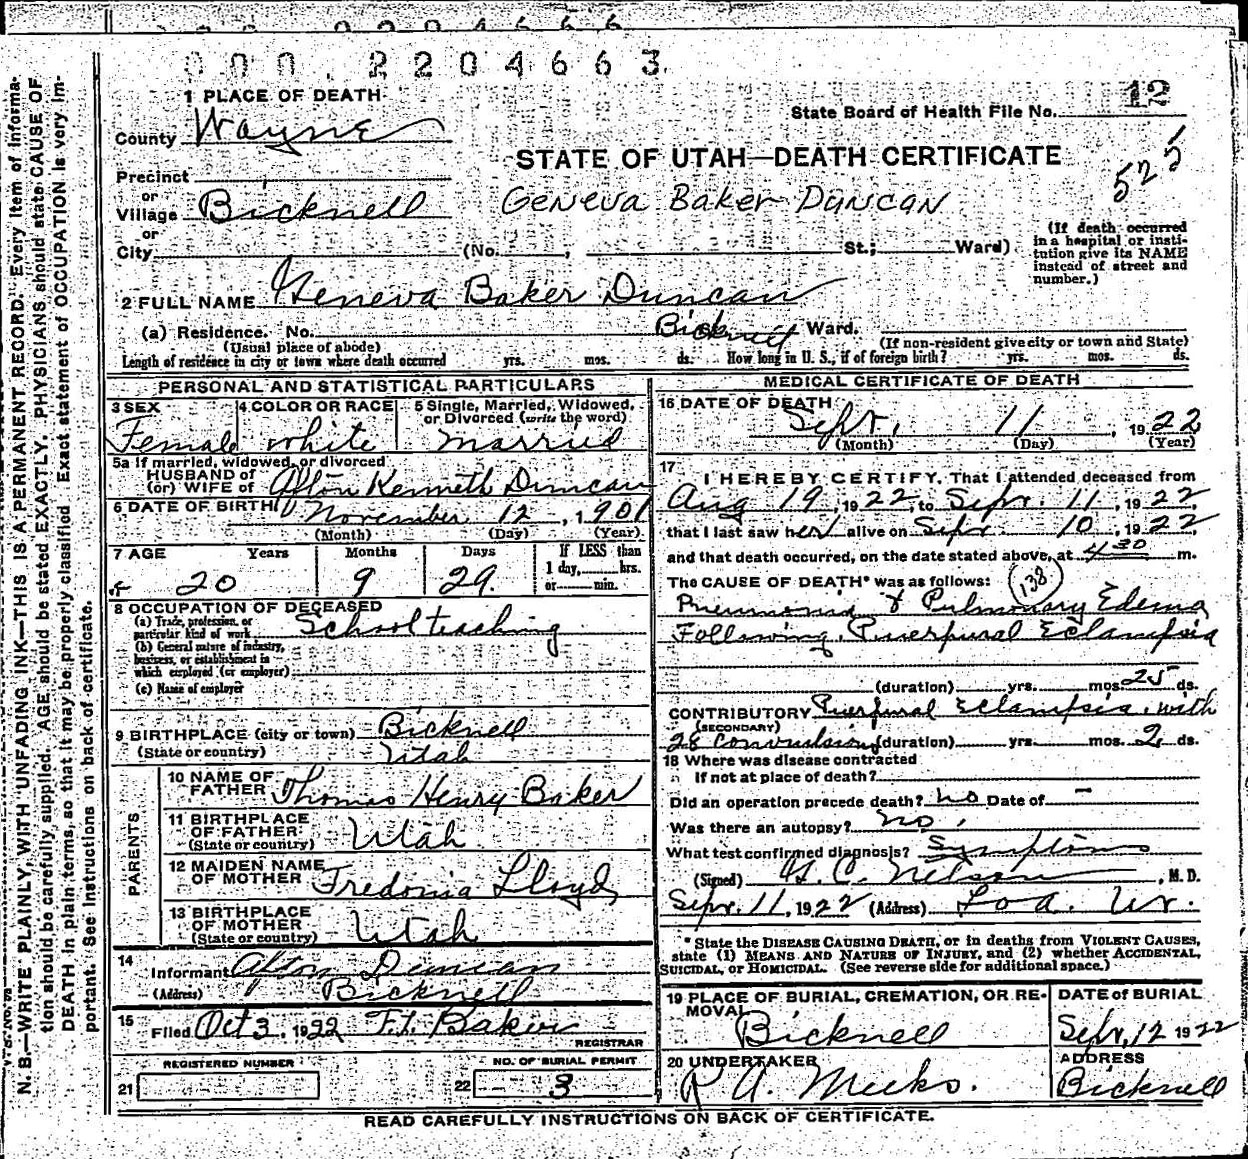 000 2204663
1 PLACE OF DEATH
State Board of Health File No. 12
County Wayne
525
STATE OF UTAH—DEATH CERTIFICATE
Precinct
or
Village Bicknell
Geneva Baker Duncan
or
City (No. , St.; Ward)
(If death occurred in a hospital or institution give its NAME instead of street and number.)
2 FULL NAME Geneva Baker Duncan
(a) Residence. No. Bicknell Ward.
(Usual place of abode) (If non-resident give city or town and State)
Length of residence in city or town where death occurred yrs. mos. ds. How long in U. S., if of foreign birth? yrs. mos. ds.
PERSONAL AND STATISTICAL PARTICULARS
3 SEX 4 COLOR OR RACE 5 Single, Married, Widowed, or Divorced (write the word)
Female white Married
5a If married, widowed, or divorced
HUSBAND of
(or) WIFE of Afton Kenneth Duncan
6 DATE OF BIRTH November 12, 1901
(Month) (Day) (Year)
7 AGE Years Months Days If LESS than
1 day, hrs.
20 9 29 or min.
8 OCCUPATION OF DECEASED
(a) Trade, profession, or
particular kind of work School teaching
(b) General nature of industry,
business, or establishment in
which employed (or employer)
(c) Name of employer
9 BIRTHPLACE (city or town) Bicknell
(State or country) Utah
PARENTS
10 NAME OF
FATHER Thomas Henry Baker
11 BIRTHPLACE
OF FATHER
(State or country) Utah
12 MAIDEN NAME
OF MOTHER Fredonia Lloyd
13 BIRTHPLACE
OF MOTHER
(State or country) Utah
14
Informant Afton Duncan
(Address) Bicknell
15
Filed Oct 3, 1922 F.I. Baker
REGISTRAR
REGISTERED NUMBER NO. OF BURIAL PERMIT
21 22 3
MEDICAL CERTIFICATE OF DEATH
16 DATE OF DEATH
Sept. 11, 1922
(Month) (Day) (Year)
17
I HEREBY CERTIFY, That I attended deceased from
Aug 19, 1922, to Sept. 11, 1922,
that I last saw her alive on Sept 10, 1922,
and that death occurred, on the date stated above, at 4 30 m.
The CAUSE OF DEATH* was as follows: 138
Pneumonia & Pulmonary Edema
Following Puerpural Eclampsia
(duration) yrs. mos. 25 ds.
CONTRIBUTORY Puerpural Eclampsia with
(SECONDARY)
28 Convulsions (duration) yrs. mos. 2 ds.
18 Where was disease contracted
if not at place of death?
Did an operation precede death? no Date of -
Was there an autopsy? no.
What test confirmed diagnosis? Symptoms
(Signed) C. Nelson, M.D.
Sept. 11, 1922 (Address) Loa. Ut.
*State the DISEASE CAUSING DEATH, or in deaths from VIOLENT CAUSES,
state (1) MEANS AND NATURE OF INJURY, and (2) whether ACCIDENTAL,
SUICIDAL, or HOMICIDAL. (See reverse side for additional space.)
19 PLACE OF BURIAL, CREMATION, OR RE-
MOVAL
Bicknell
DATE of BURIAL
Sept. 12 1922
20 UNDERTAKER
R A. Meeks.
ADDRESS
Bicknell
READ CAREFULLY INSTRUCTIONS ON BACK OF CERTIFICATE.
N. B.—WRITE PLAINLY, WITH UNFADING INK—THIS IS A PERMANENT RECORD. Every item of informa-
tion should be carefully supplied. AGE should be stated EXACTLY. PHYSICIANS should state CAUSE OF
DEATH in plain terms, so that it may be properly classified. Exact statement of OCCUPATION is very im-
portant. See instructions on back of certificate.